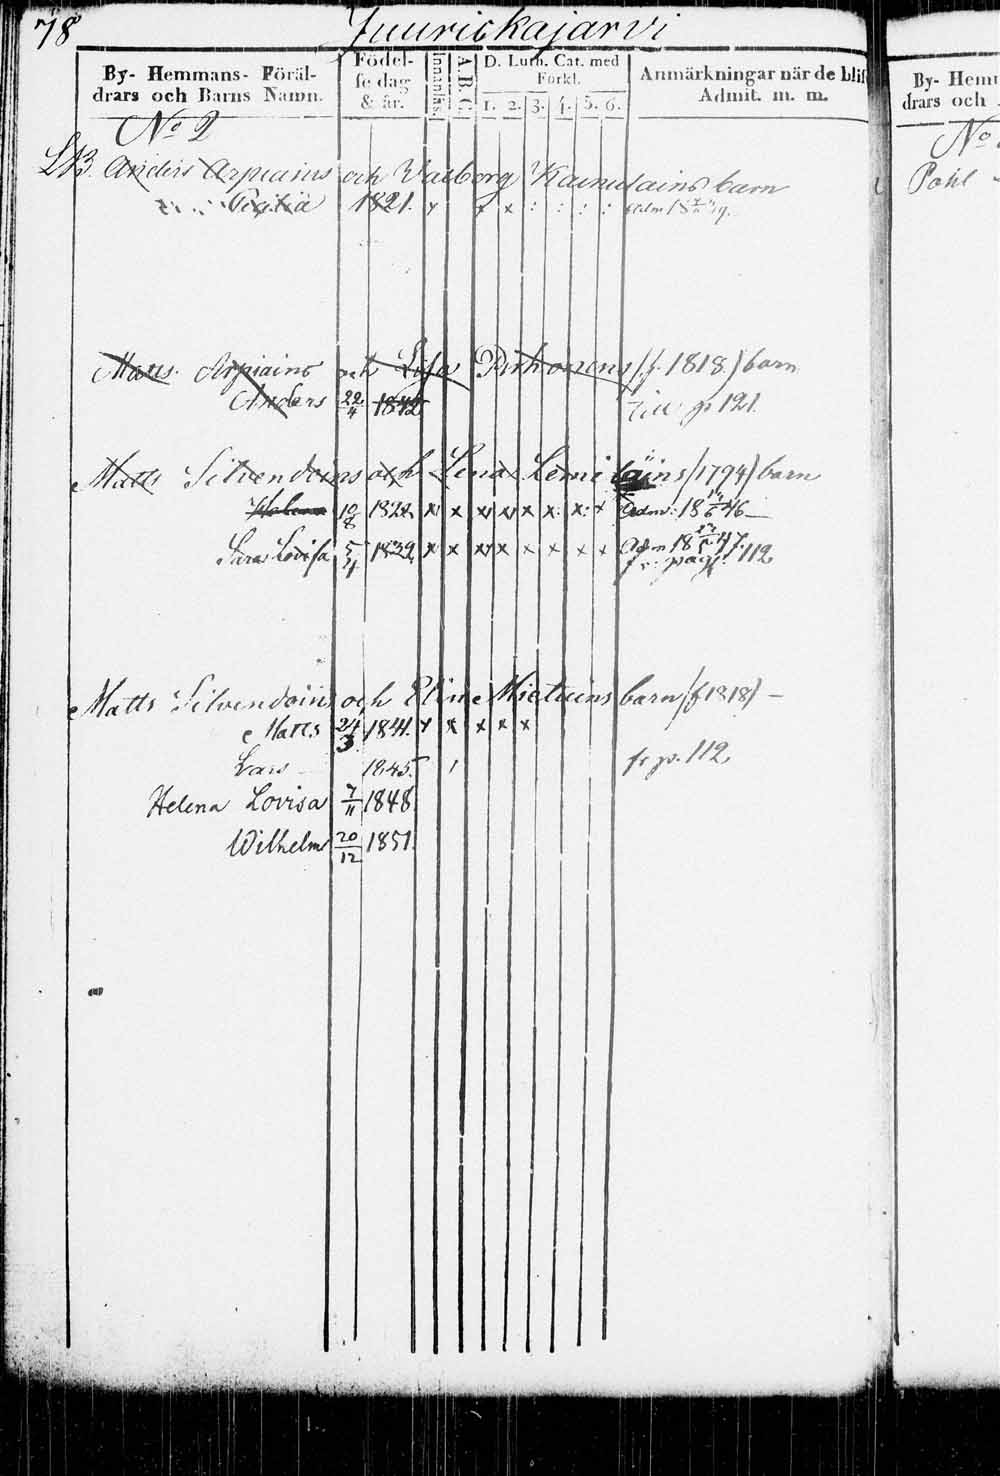 78 Juurickajarvi
By- Hemmans- Föräl-
drars och Barns Namn.
Födel-
se dag
& år.
Innanläs.
A. B. C.
D. Luth. Cat. med
Förkl.
1. 2. 3. 4. 5. 6.
Anmärkningar när de blif
Admit. m. m.
No 2
Anders Arpiains och Valborg Kainulains barn
Cecilia 1821. x x x : : : : Adm 18 39.
Matts Arpiains och Lisa Pirhonens (f. 1818.) barn
Anders 22/4 1842 till p 121.
Matts Silvendoins och Lena Lemiläins (1794) barn
10/8 182 x x x x x x x x Adm: 18 46
Sara Lovisa 5/4 1832 x x x x x x x x Adm 18 47.
fr: pag: 112
Matts Silvendoins och Elin Mietuins barn (f 1818) —
Matts 24/3 1841. x x x x x
Lars 1845. fr p. 112.
Helena Lovisa 7/11 1848
Wilhelm 20/12 1851.
By- Hem
drars och
No
Pohl